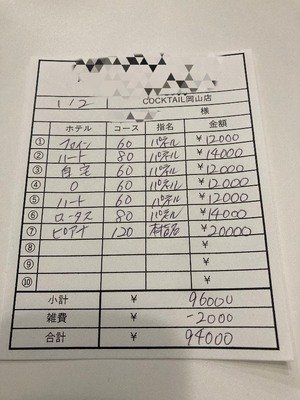 COCKTAIL岡山店
1/2 様
ホテル コース 指名 金額
① ファイン 60 パネル ¥12000
② ハート 80 パネル ¥14000
③ 自宅 60 パネル ¥12000
④ O 60 パネル ¥12000
⑤ ハート 60 パネル ¥12000
⑥ ロータス 80 パネル ¥14000
⑦ ピアナ 120 本指名 ¥20000
⑧ ¥
⑨ ¥
⑩ ¥
小計 ¥ 96000
雑費 ¥ -2000
合計 ¥ 94000